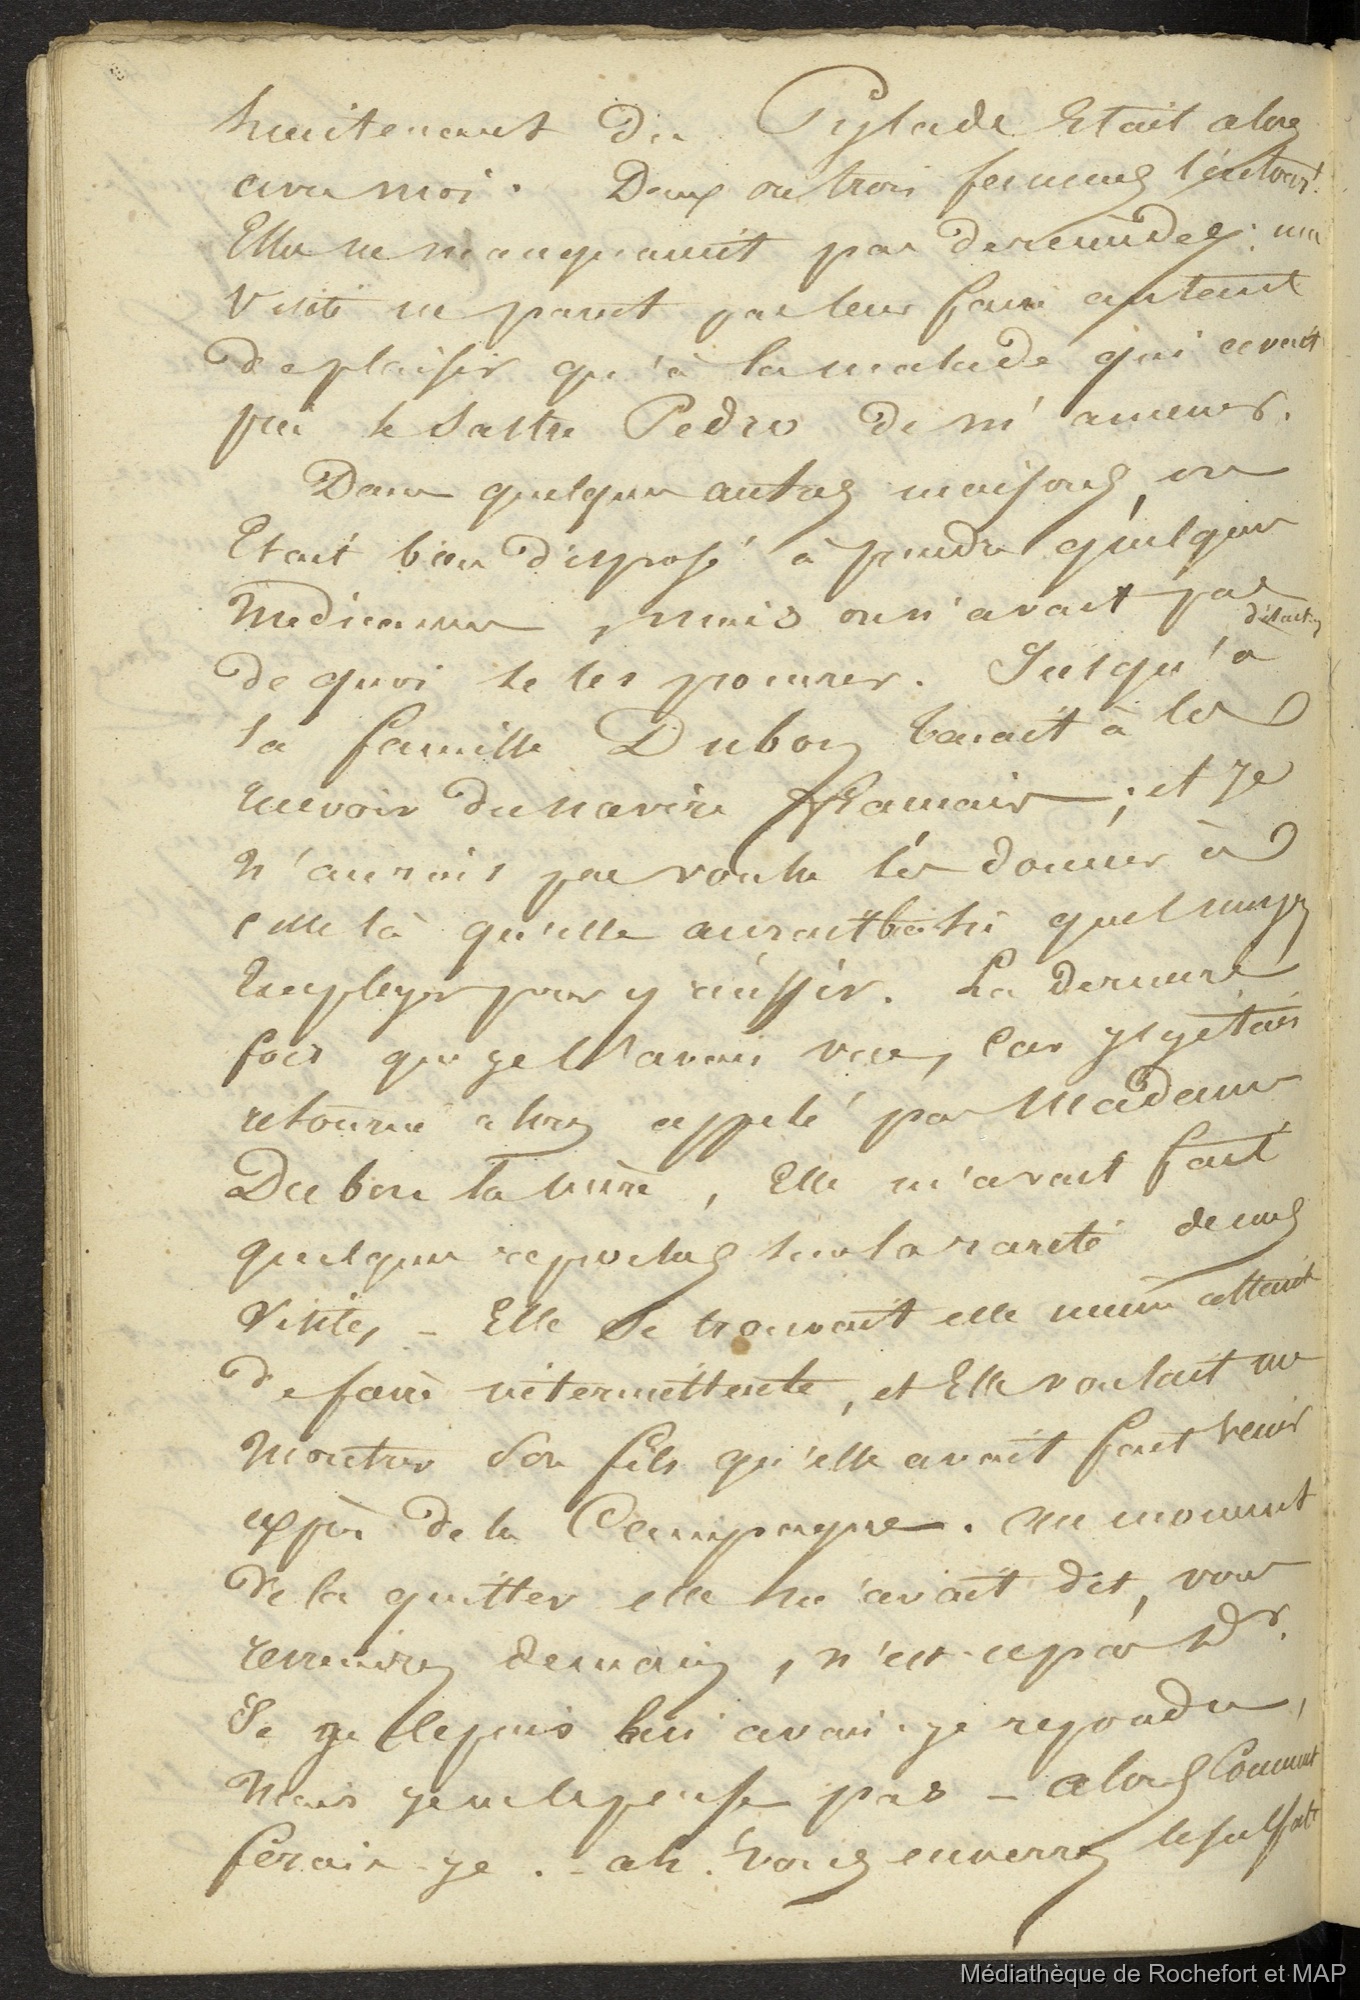 lieutenant du Pylade Etait alors
avec moi. Deux ou trois femmes l'entour.t
Elles ne manquaient pas de remèdes; ma
visite ne parut pas leur faire autant
de plaisir qu'à la malade qui avait
prié le Sastre Pedro de m'amener.
Dans quelques autres maisons, on
Etait bien disposé à prendre quelques
médicamens, mais on n'avait pas
de quoi se les procurer. Jusqu'à
la famille Dubois tenait à les
recevoir du navire français; et je
n'aurais pas voulu les donner à
celle là qu'elle aurait quel moyen
Employer pour y réussir. La dernière
fois que je l'avais vue, car j'y étais
retourné alors appelé par Madame
Dubois la mère, Elle m'avait fait
quelques reproches sur la rareté de mes
visites - Elle se trouvait elle même atteinte
de fièvre intermittente, et Elle voulait me
montrer son fils qu'elle avait fait venir
exprès de la Campagne. Au moment
de la quitter elle m'avait dit, vous
reviendrez demain, n'est-ce pas Dr.
Si je le puis lui avais-je répondu,
mais je ne le pense pas - alors Comment
ferais-je. - ah! vous enverrez le sulfate